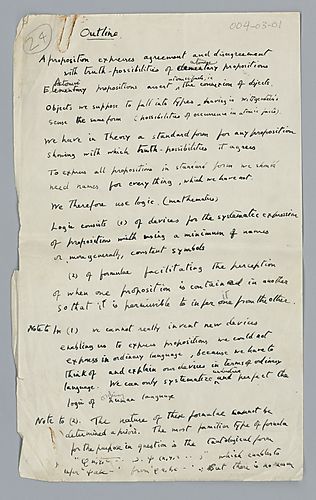 24
004-03-01
Outline
A proposition expresses agreement and disagreement
with truth-possibilities of elementary atomic propositions
Elementary Atomic propositions assert atomic facts, i.e. the connexion of objects.
Objects we suppose to fall into types, having in Wittgenstein's
sense the same form (possibilities of occurrence in atomic facts).
We have in Theory a standard form for any proposition
showing with which truth-possibilities it agrees
To express all propositions in standard form we should
need names for everything, which we have not.
We Therefore use logic. (mathematics)
Logic consists (1) of devices for the systematic expression
of propositions with using a minimum of names
or, more generally, constant symbols
(2) of formulae facilitating the perception
of when one proposition is contained in another
so that it is permissible to infer one from the other.
Note to (1) we cannot really invent new devices
enabling us to express propositions we could not
express in ordinary language, because we have to
think of and explain our devices in terms of ordinary
language. We can only systematize and perfect the
logic of human language
Note to (2). The nature of these formulae cannot be
determined a priori. The most familiar type of formula
for the purpose in question is the tautological form
which enables to
infer from : But there is no reason